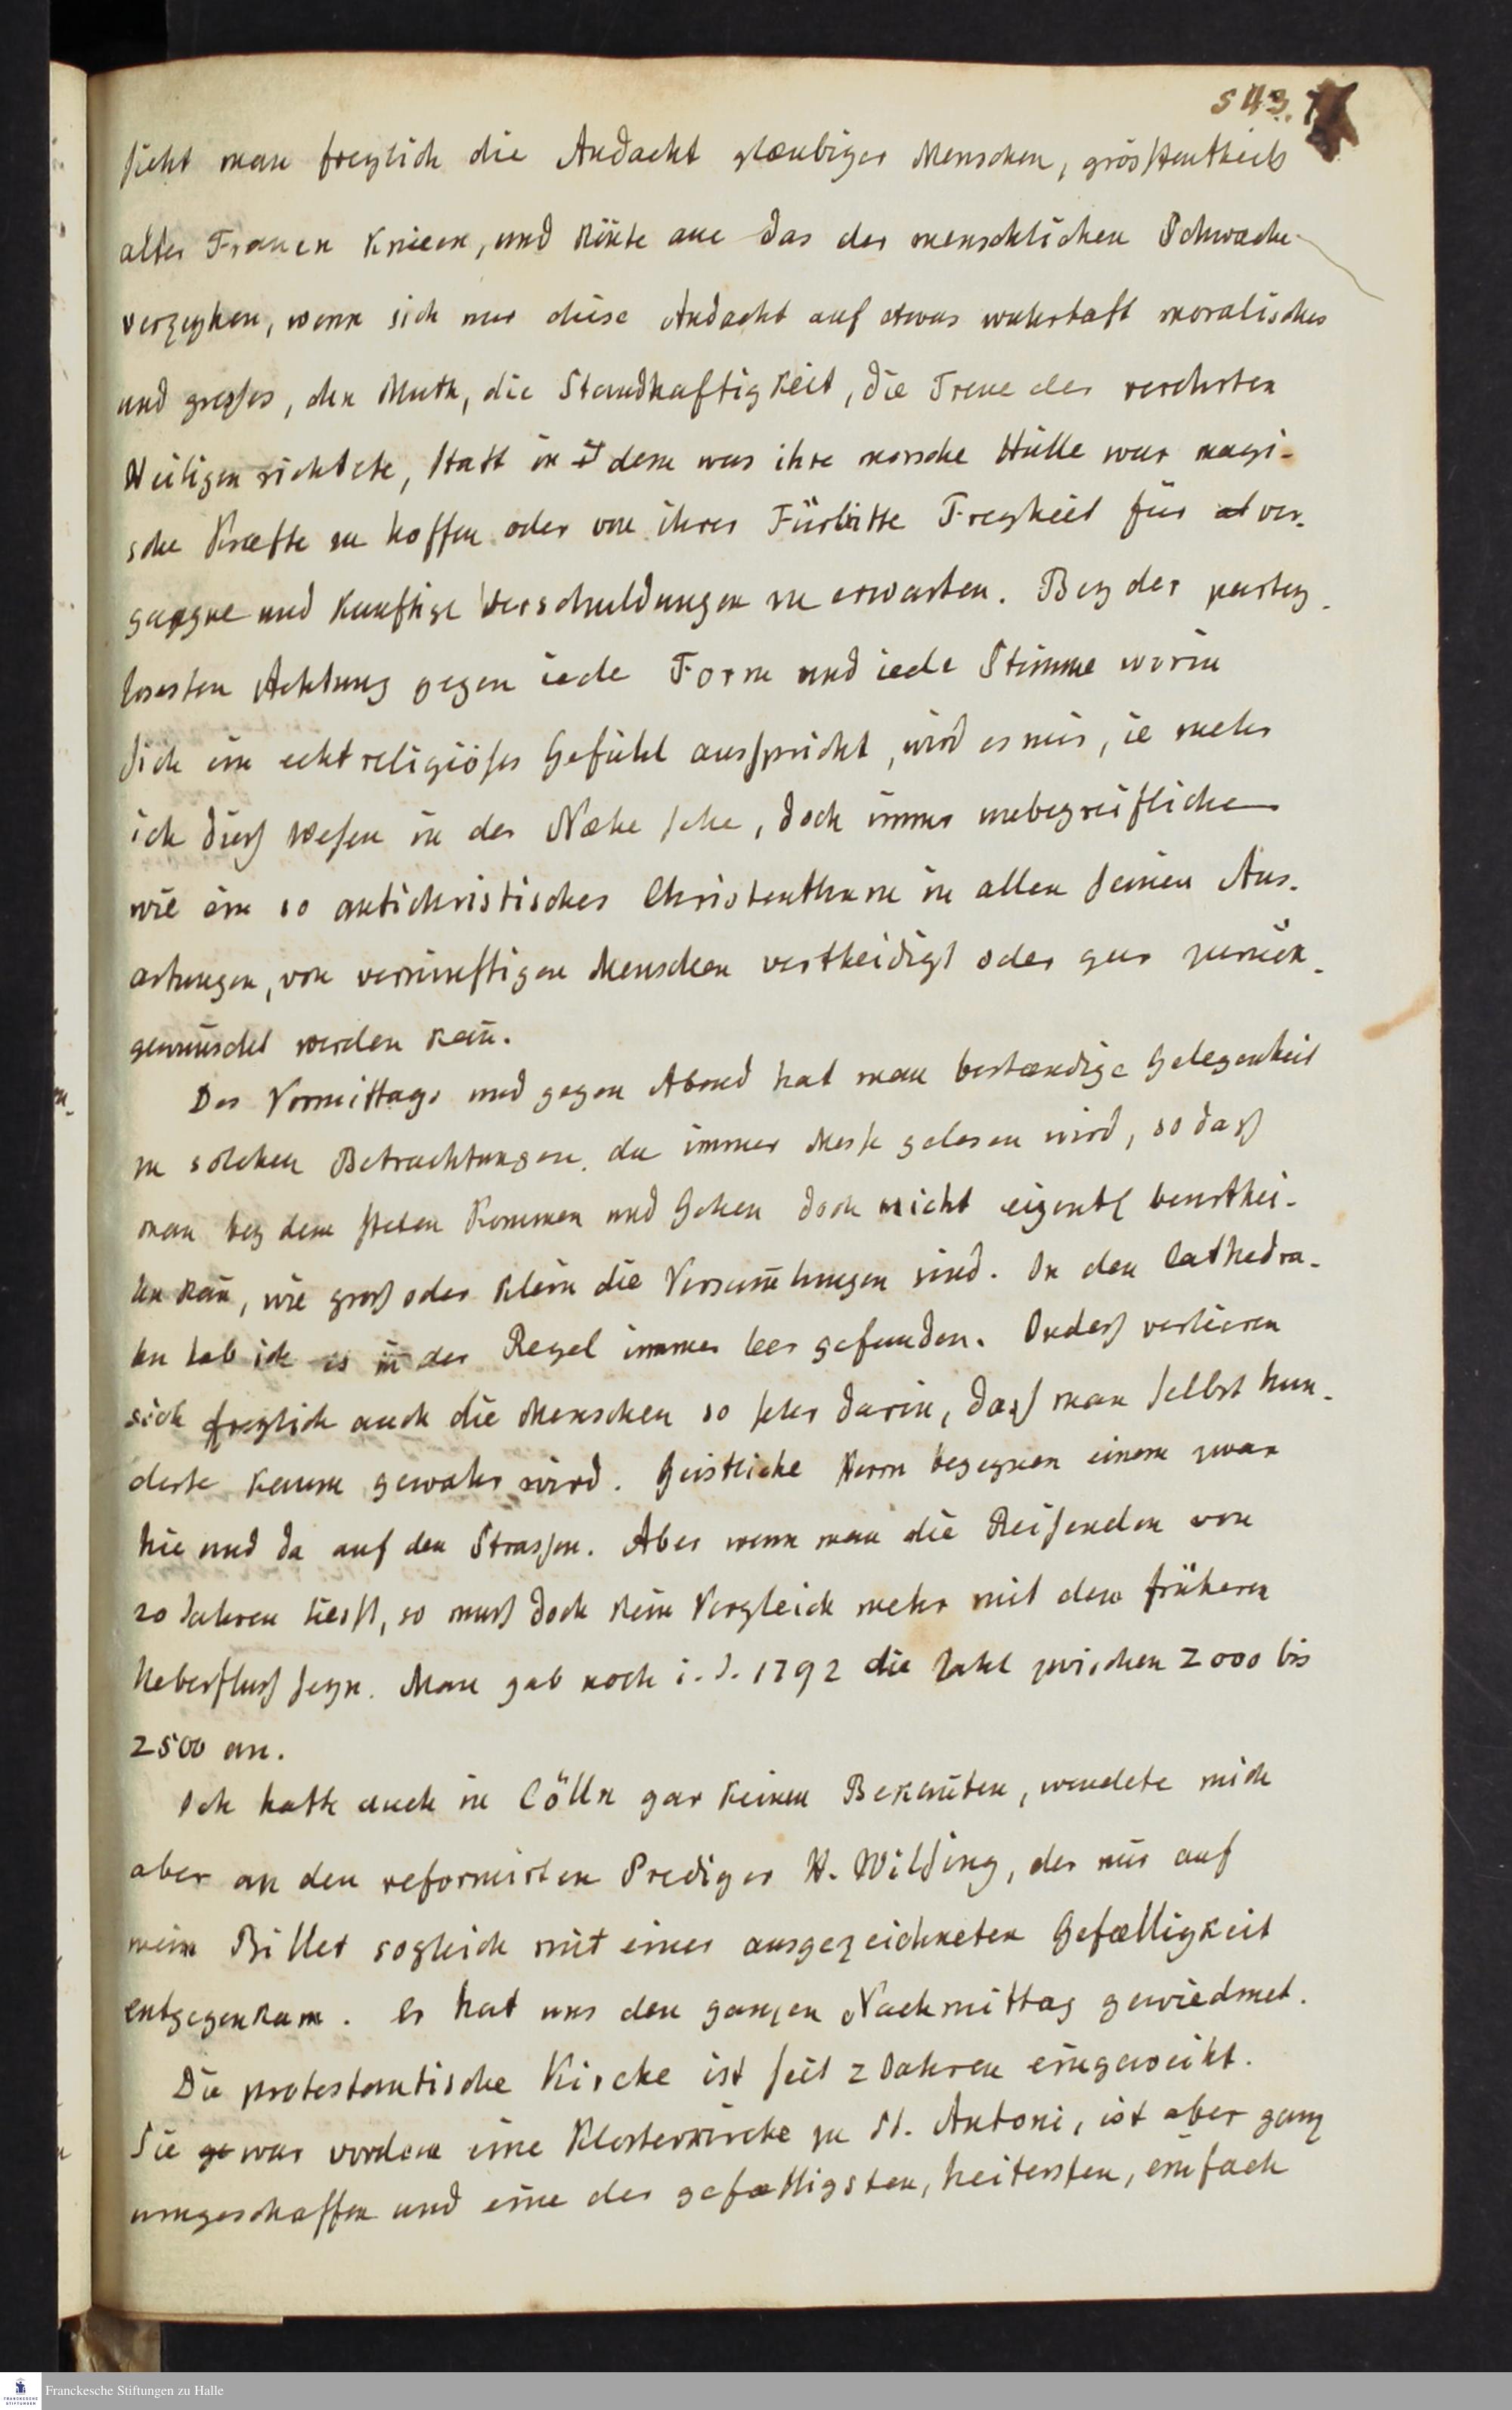 543.
sieht man freylich die Andacht glæubiger Menschen, grösstentheils
alter Frauen knieen, und könte auch das der menschlichen Schwæche
verzeyhen, wenn sich nur diese Andacht auf etwas wahrhaft moralisches
und grosses, den Muth, die Standhaftigkeit, die Treue der verehrten
Heiligen richtete, statt in dem was ihre morsche Hülle war magi-
sche Kræfte zu hoffen oder von ihrer Fürbitte Freyheit für ver-
gangne und kunftige Verschuldungen zu erwarten. Bey der partey-
losesten Achtung gegen iede Form und iede Stimme worin
sich ein echt religiöses Gefühl ausspricht, wird es mir, ie mehr
ich dieß Wesen in der Næhe sehe, doch immer unbegreiflicher
wie ein so antichristisches Christenthum in allen seinen Aus-
artungen, von vernünftigen Menschen vertheidigt oder gar zurück-
gewünscht werden kan̄.
Des Vormittags und gegen Abend hat man bestændige Gelegenheit
zu solchen Betrachtungen, da immer Messe gelesen wird, so daß
man bey dem steten Kommen und Gehen doch nicht eigentl beurthei-
len kan̄, wie groß oder klein die Versam̄lungen sind. In den Cathedra-
len hab ich es in der Regel immer leer gefunden. Indeß verlieren
sich freylich auch die Menschen so sehr darin, daß man selbst hun-
derte kaum gewahr wird. Geistliche Herrn begegnen einem zwar
hie und da auf den Strassen. Aber wenn man die Reisenden von
20 Jahren liesst, so muß doch kein Vergleich mehr mit dem frühern
Ueberfluß seyn. Man gab noch i. J. 1792 die Zahl zwischen 2000 bis
2500 an.
Ich hatte auch in Cölln gar keinen Bekan̄ten, wendete mich
aber an den reformirten Prediger H. Wilsing, der mir auf
mein Billet sogleich mit einer ausgezeichneten Gefælligkeit
entgegenkam. Er hat uns den ganzen Nachmittag gewiedmet.
Die protestantische Kirche ist seit 2 Jahren eingeweiht.
Sie war vordem eine Klosterkirche zu St. Antoni, ist aber ganz
umgeschaffen und eine der gefælligsten, heitersten, einfach
Franckesche Stiftungen zu Halle